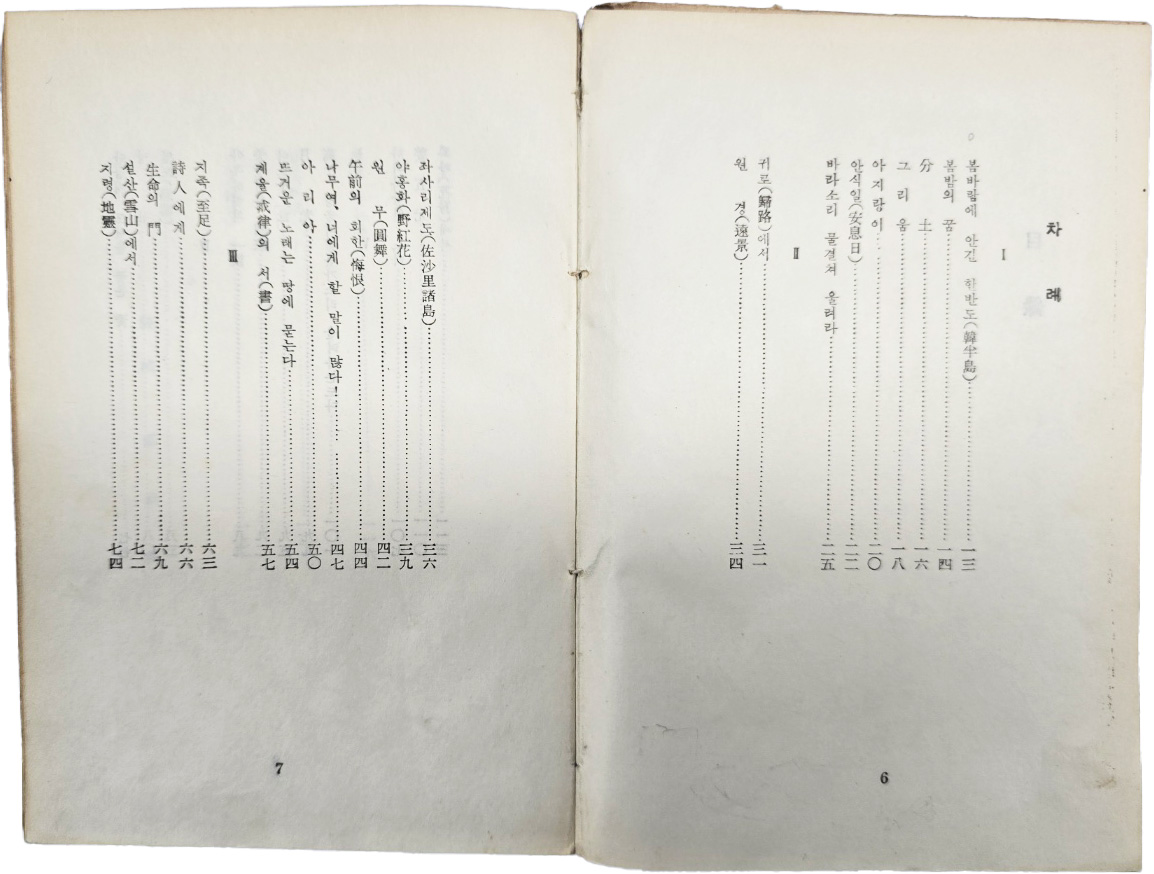 차 례
I
봄바람에 안긴 한반도(韓半島)……一三
봄밤의 꿈……一四
分 土……一六
그 리 움……一八
아지랑이……二〇
안식일(安息日)……二二
바라소리 물결쳐 울려라……二五
II
귀로(歸路)에서……三一
원 경(遠景)……三四
6
좌사리제도(佐沙里諸島)……三六
야홍화(野紅花)……三九
원 무(圓舞)……四二
午前의 회한(悔恨)……四四
나무여, 너에게 할 말이 많다!……四七
아 리 아……五〇
뜨거운 노래는 땅에 묻는다……五四
계율(戒律)의 서(書)……五七
III
지족(至足)……六三
詩人에게……六六
生命의 門……六九
설산(雪山)에서……七二
지령(地靈)……七四
7